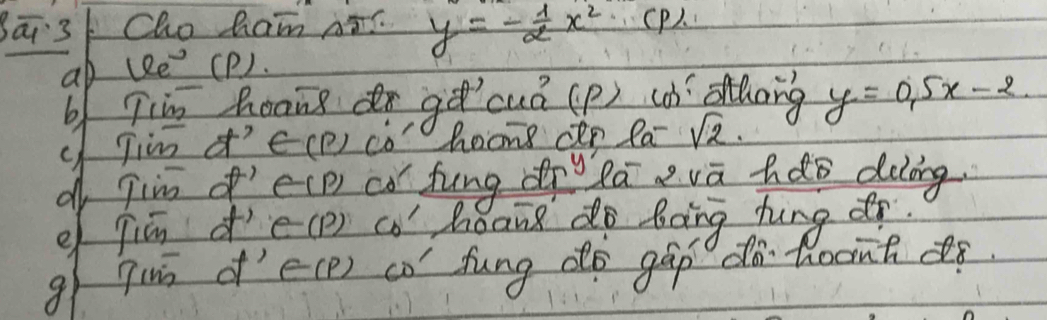 Bài 3 Cho hàm số: y = -1/2 x² (P).
a) Vẽ (P).
b) Tìm hoành độ gđ' của (P) với đthẳng y = 0,5x - 2.
c) Tìm đ' ∈ (P) có hoành độ là √2.
d) Tìm đ' ∈ (P) có tung độ y là 2 và hđộ dương.
e) Tìm đ' ∈ (P) có hoành độ bằng tung độ.
g) Tìm đ' ∈ (P) có tung độ gấp đôi hoành độ.